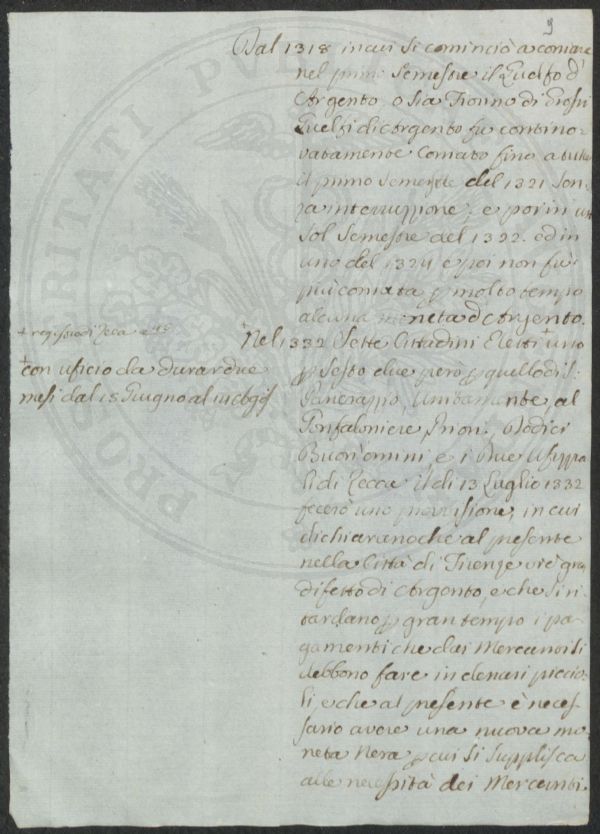 9
Dal 1318 in cui si cominciò a coniare
nel primo Semestre il Guelfo d'
Argento, o sia Fiorino di Grossi
Guelfi di Argento fu contino-
vatamente Coniato fino a tutto
il primo Semestre del 1321 Sen-
za interruzzione, e poi in un
Sol Semestre del 1322. ed in
uno del 1324 e poi non fu
più coniata p molto tempo
alcuna moneta d'Argento.
+ registro di Zecca a
Nel 1332 Sette Cittadini Eletti + uno
+ con uficio da durar due
p Sesto due però p quello di S.
mesi dal 15 Giugno al
Pancrazzio, Unitamente, al
Gonfaloniere, Priori, Dodici
Buoni omini, e i Due Ufizzia
li di Zecca il dì 13 Luglio 1332
fecero una provisione, in cui
dichiarano che al presente
nella Città di Firenze vi è gran
difetto di Argento, e che si ri
tardano p gran tempo i pa-
gamenti che dai Mercanti si
debbono fare in denari piccio-
li, e che al presente è neces-
sario avere una nuova mo-
neta Nera p cui si Supplisca
alle necessità dei Mercanti.
PROSPERITATI PVBLIC